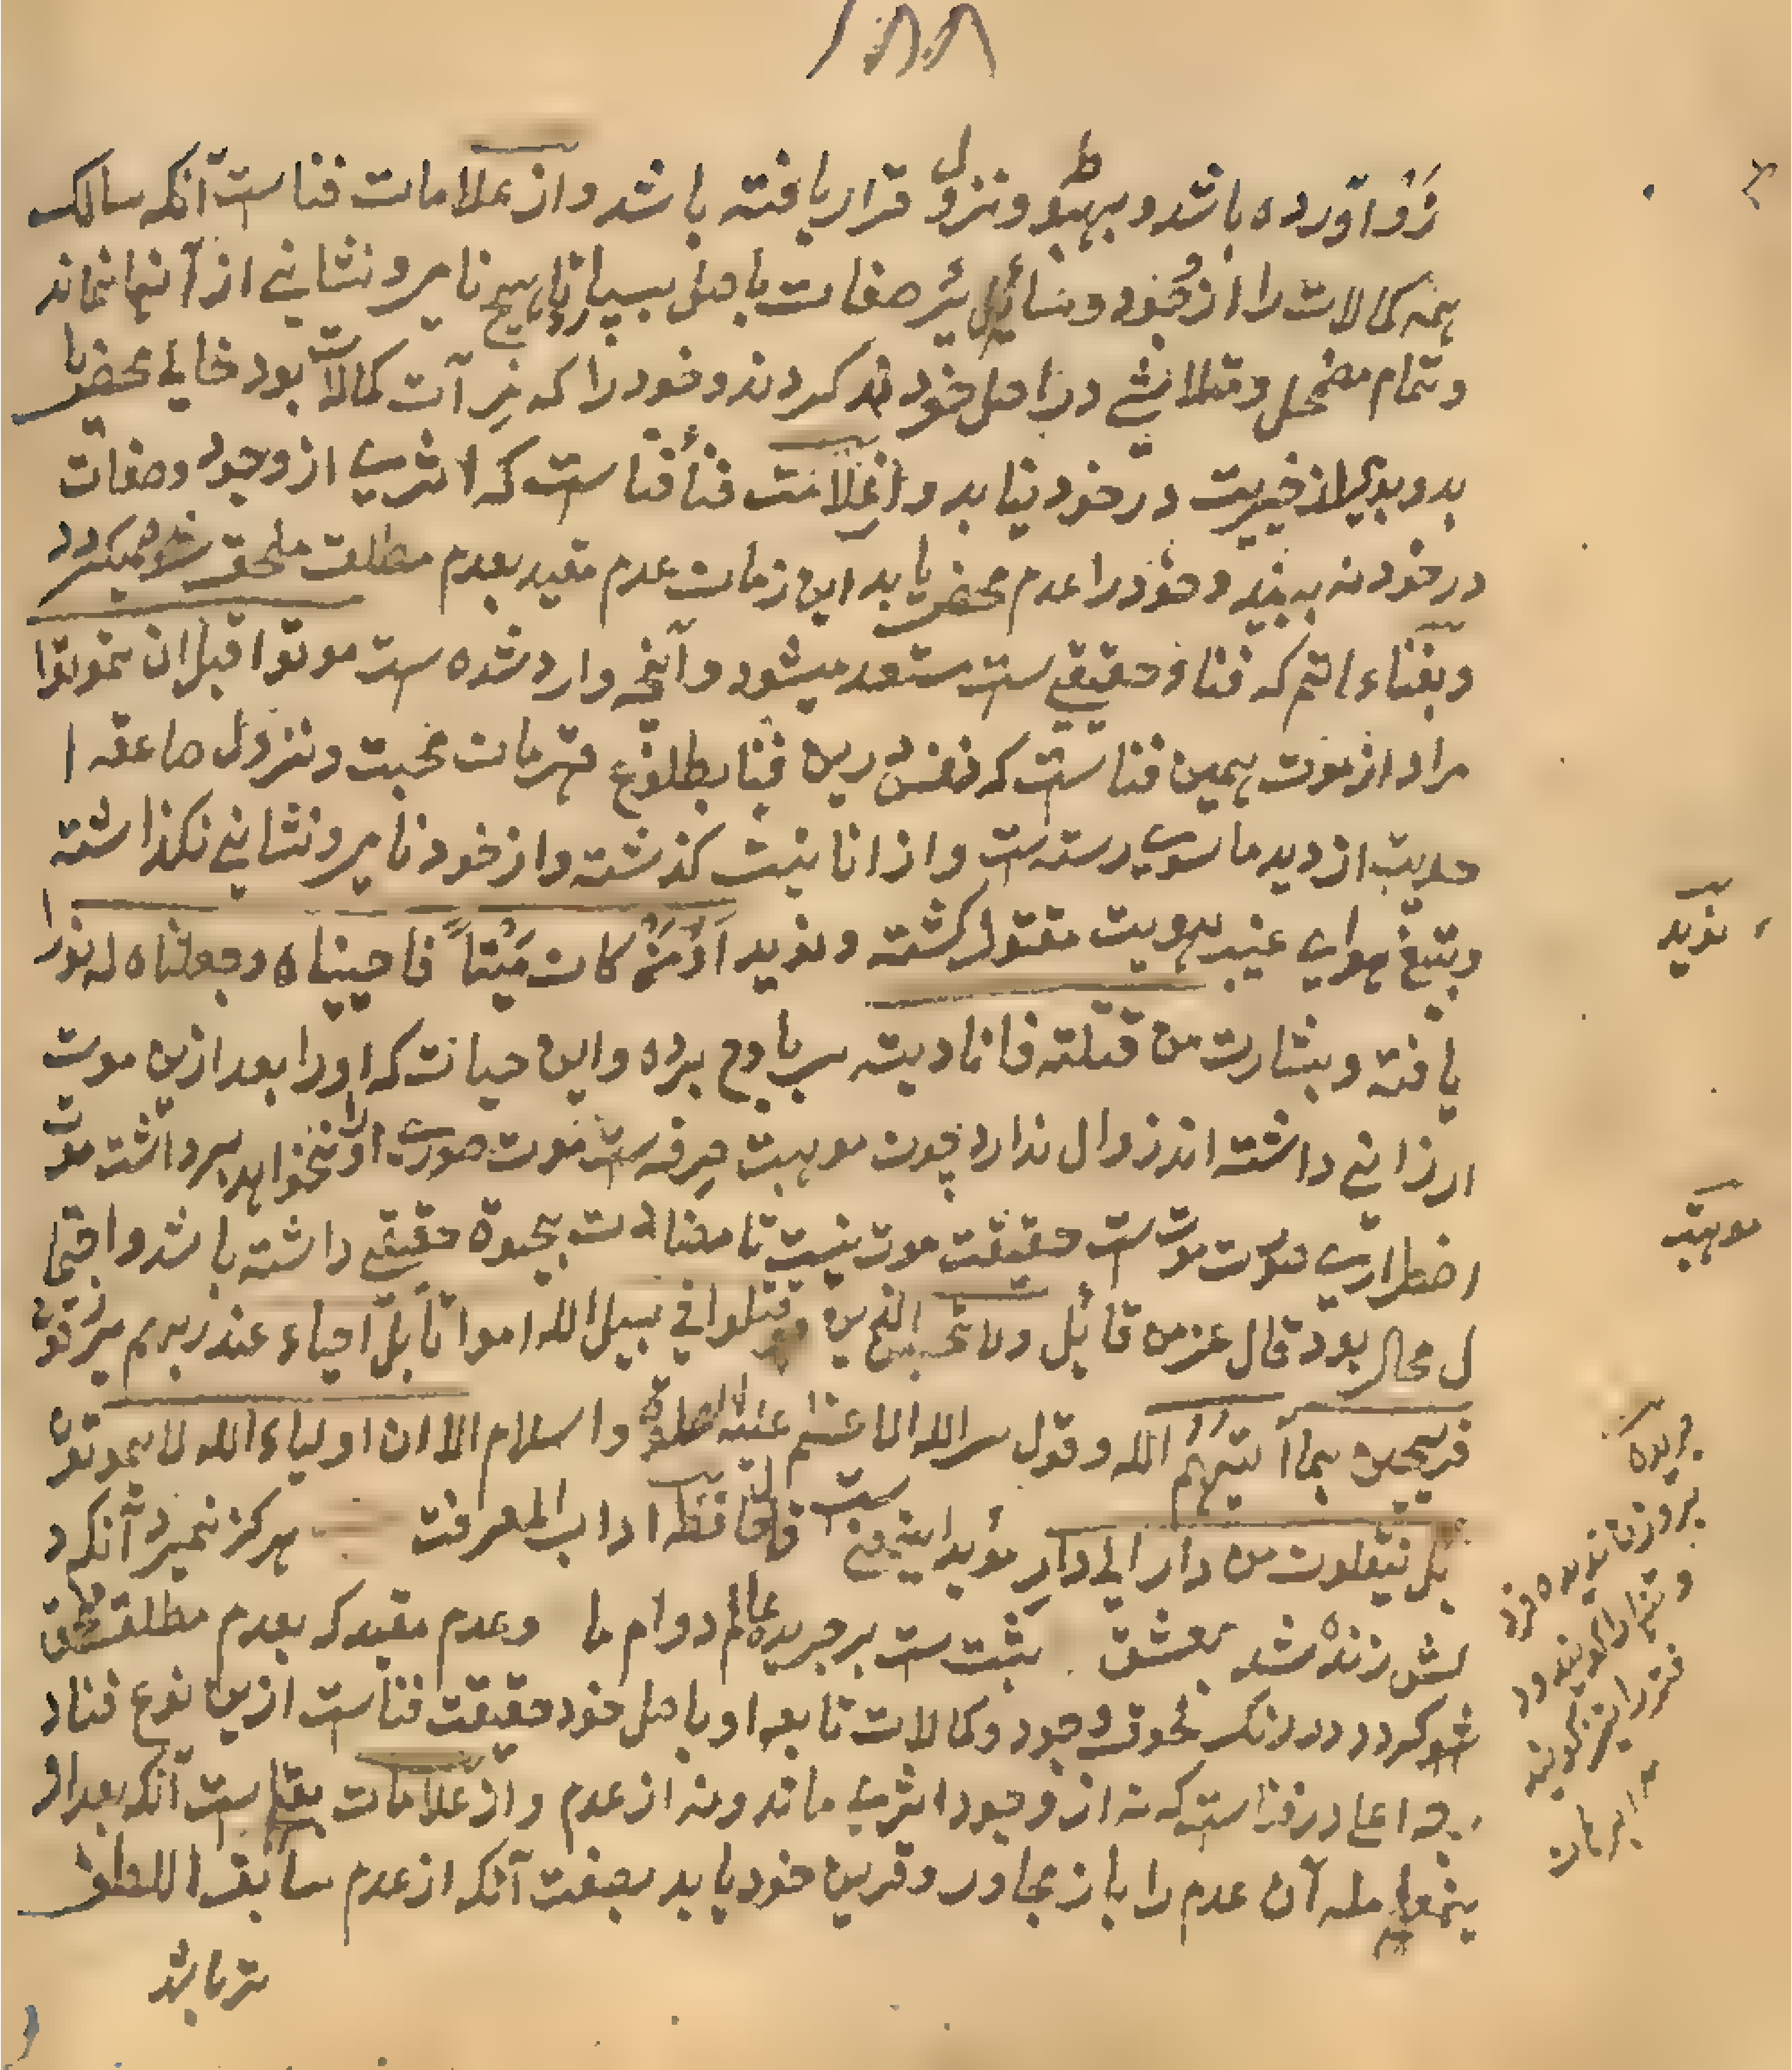 ۱۸۸
رو آورده باشد و بهبوط و نزول قرار یافته باشد و از علامات فناست آنکه سالک
همه کمالات را از خود و سائر صفات باصل سپارد تا هیچ نامی و نشانی از آنها نماند
و تمام مضمحل و متلاشی در اصل خود کردند و خود را که مرآت کمالات بود خالی محض یا
بد و بوی از خیریت در خود نیابد و از علامت فناء فناست که اثری از وجود و صفات
در خود نه بیند و خود را عدم محض یابد این زمان عدم مقید بعدم مطلق ملحق شده میگردد
و بفناء اتم که فناء حقیقی ست مستعد میشود و آنچه وارد شده ست موتوا قبل ان تموتوا
مراد از موت همین فناست که نفس درین فنا بطلوع قهرمان محبت و نزول صاعقه ا
حدیت از دید ماسوی رسته ست و از انانیت کذشته و از خود نامی و نشانی نکذاشته
و بتیغ هوای غیب هویت مقتول کشته و نوید اومن کان میتاً فاحییناه و جعلناه له نورا
یافته و بشارت من قتلته فانا دیته سر باوج برده و این حیات که او را بعد ازین موت
ارزانی داشته اند زوال ندارد چون موهبت صرفه ست موت صوری او را نخواهد برداشت موت
اضطراری صورت موت ست حقیقت موت نیست تا منافات بحیوة حقیقی داشته باشد و اجتما
ل محال بود قال عز من قائل ولا تحسبن الذین قتلوا فی سبیل الله امواتا بل احیاء عند ربهم یرزقون
فرحین بما آتیهم الله و قول سر الله الاعظم علیه الصلوة والسلام الا ان اولیاء الله لا یموتون
بل ینقلون من دار الی دار مؤید این معنی ست قال حافظ اداب المعرفت هرکز نمیرد آنکه د
لش زنده شد بعشق ثبت ست بر جریده عالم دوام ما و عدم مقید که بعدم مطلق ملحق
شو کردد در رنک لحوق وجود و کمالات تابعه او باصل خود حقیقت فناست ازین نوع فنا د
رجه اعلی در فناست که نه از وجود اثری ماند و نه از عدم و از علامات بقاست آنکه بعد از
ینمعامله آن عدم را باز مجاور و قرین خود یابد بصفت آنکه از عدم سابق اللطف
تر باشد
نوید
موهبت
جریده